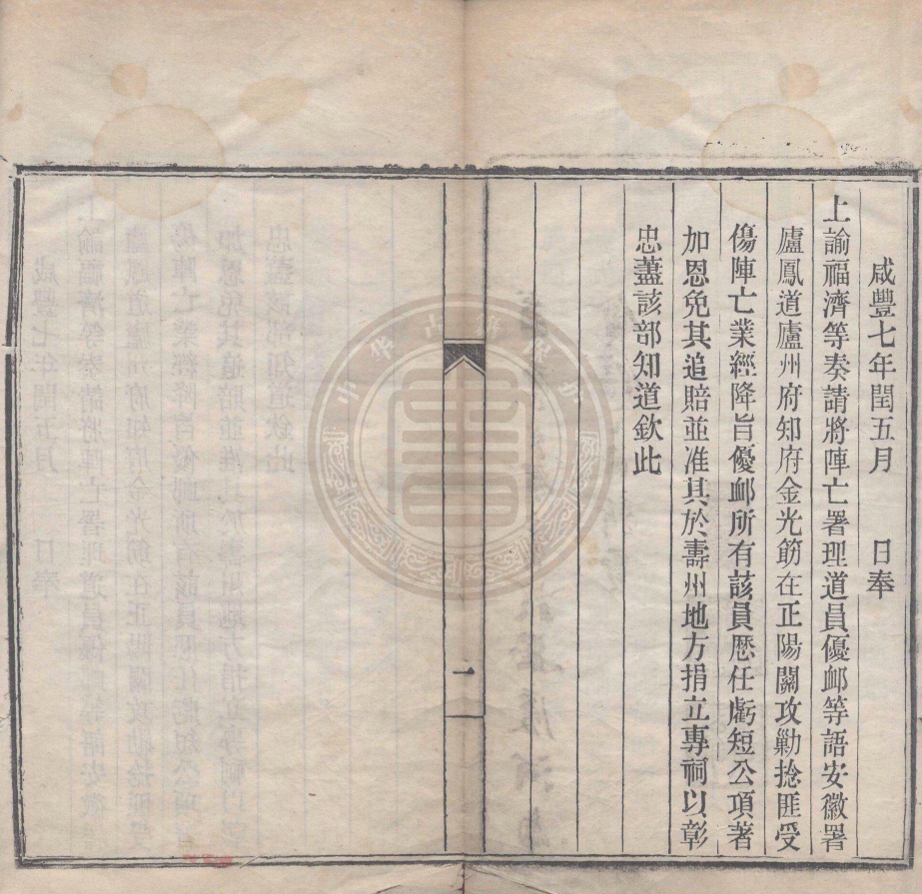 咸豐七年閏五月　　日奉
上諭福濟等奏請將陣亡署理道員優䘏等語安徽署
廬鳳道廬州府知府金光筯在正陽關攻勦捻匪受
傷陣亡業經降旨優䘏所有該員歷任虧短公項著
加恩免其追賠並准其於壽州地方捐立專祠以彰
忠藎該部知道欽此
一